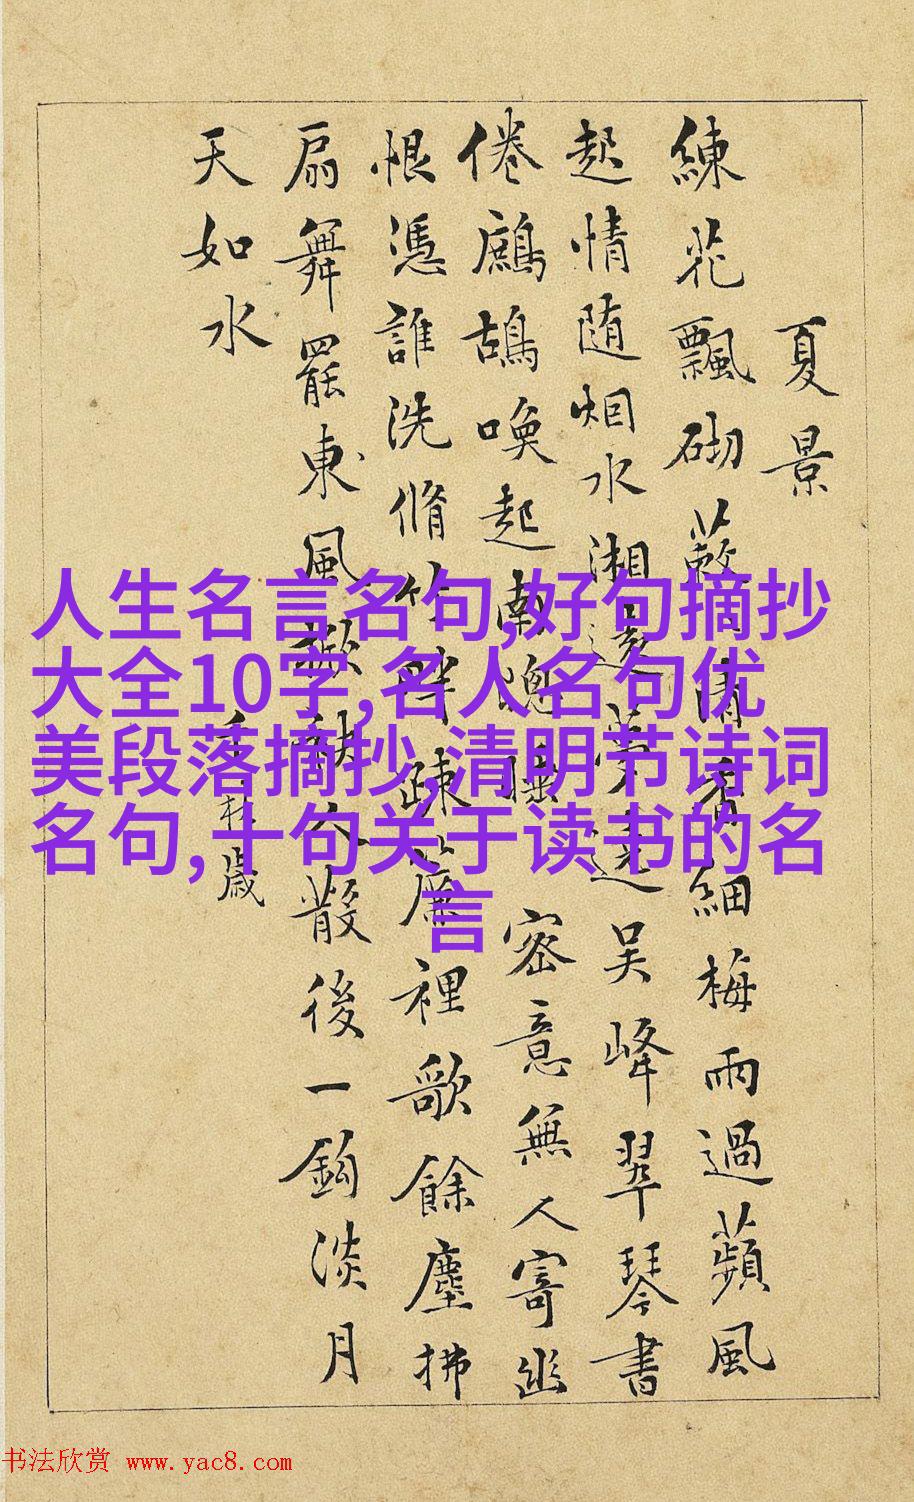 夏景
練花飄砌蔌々清香細梅雨過蘋風
起情随烟水湘遠夢遶吴峰翠琴書
倦鷓鴣喚起南窻睡密意無人寄幽
恨憑誰洗脩竹畔疎簾裡歌餘塵拂
扇舞罷東風掀袂人散後一鈎淡月
天如水
千秋歲
人生名言名句,好句摘抄
大全10字,名人名句优
美段落摘抄,清明节诗词
名句,十句关于读书的名
言
书法欣赏 www.yac8.com